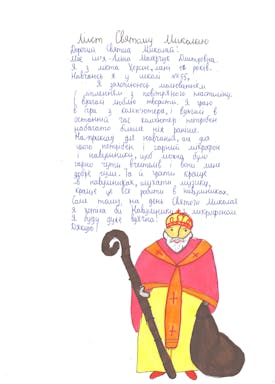 Лист Святому Миколаю
Дорогий Святий Миколай!
Моє ім'я - Аліна Дмитрівна.
Я з міста Херсон, мені років.
Навчаюсь я у школі №55,
Я захоплююсь малюванням
і ліпленням з повітряного пластиліну.
Взагалі люблю творити. Я граю
в ігри з комп'ютера, і взагалі в
останній час комп'ютер потрібен
набагато більше ніж раніше.
Наприклад для навчання, на да
цього потрібен і гарний мікрофон
і навушники, щоб можна було
гарно чути вчителів і вони мене
добре чули. Та й грати краще
в навушниках, слухати музику,
краще це все робити в навушниках.
Саме тому, на день Святого Миколая
я хотіла би Навушники з мікрофоном
Я буду дуже вдячна!
Дякую!